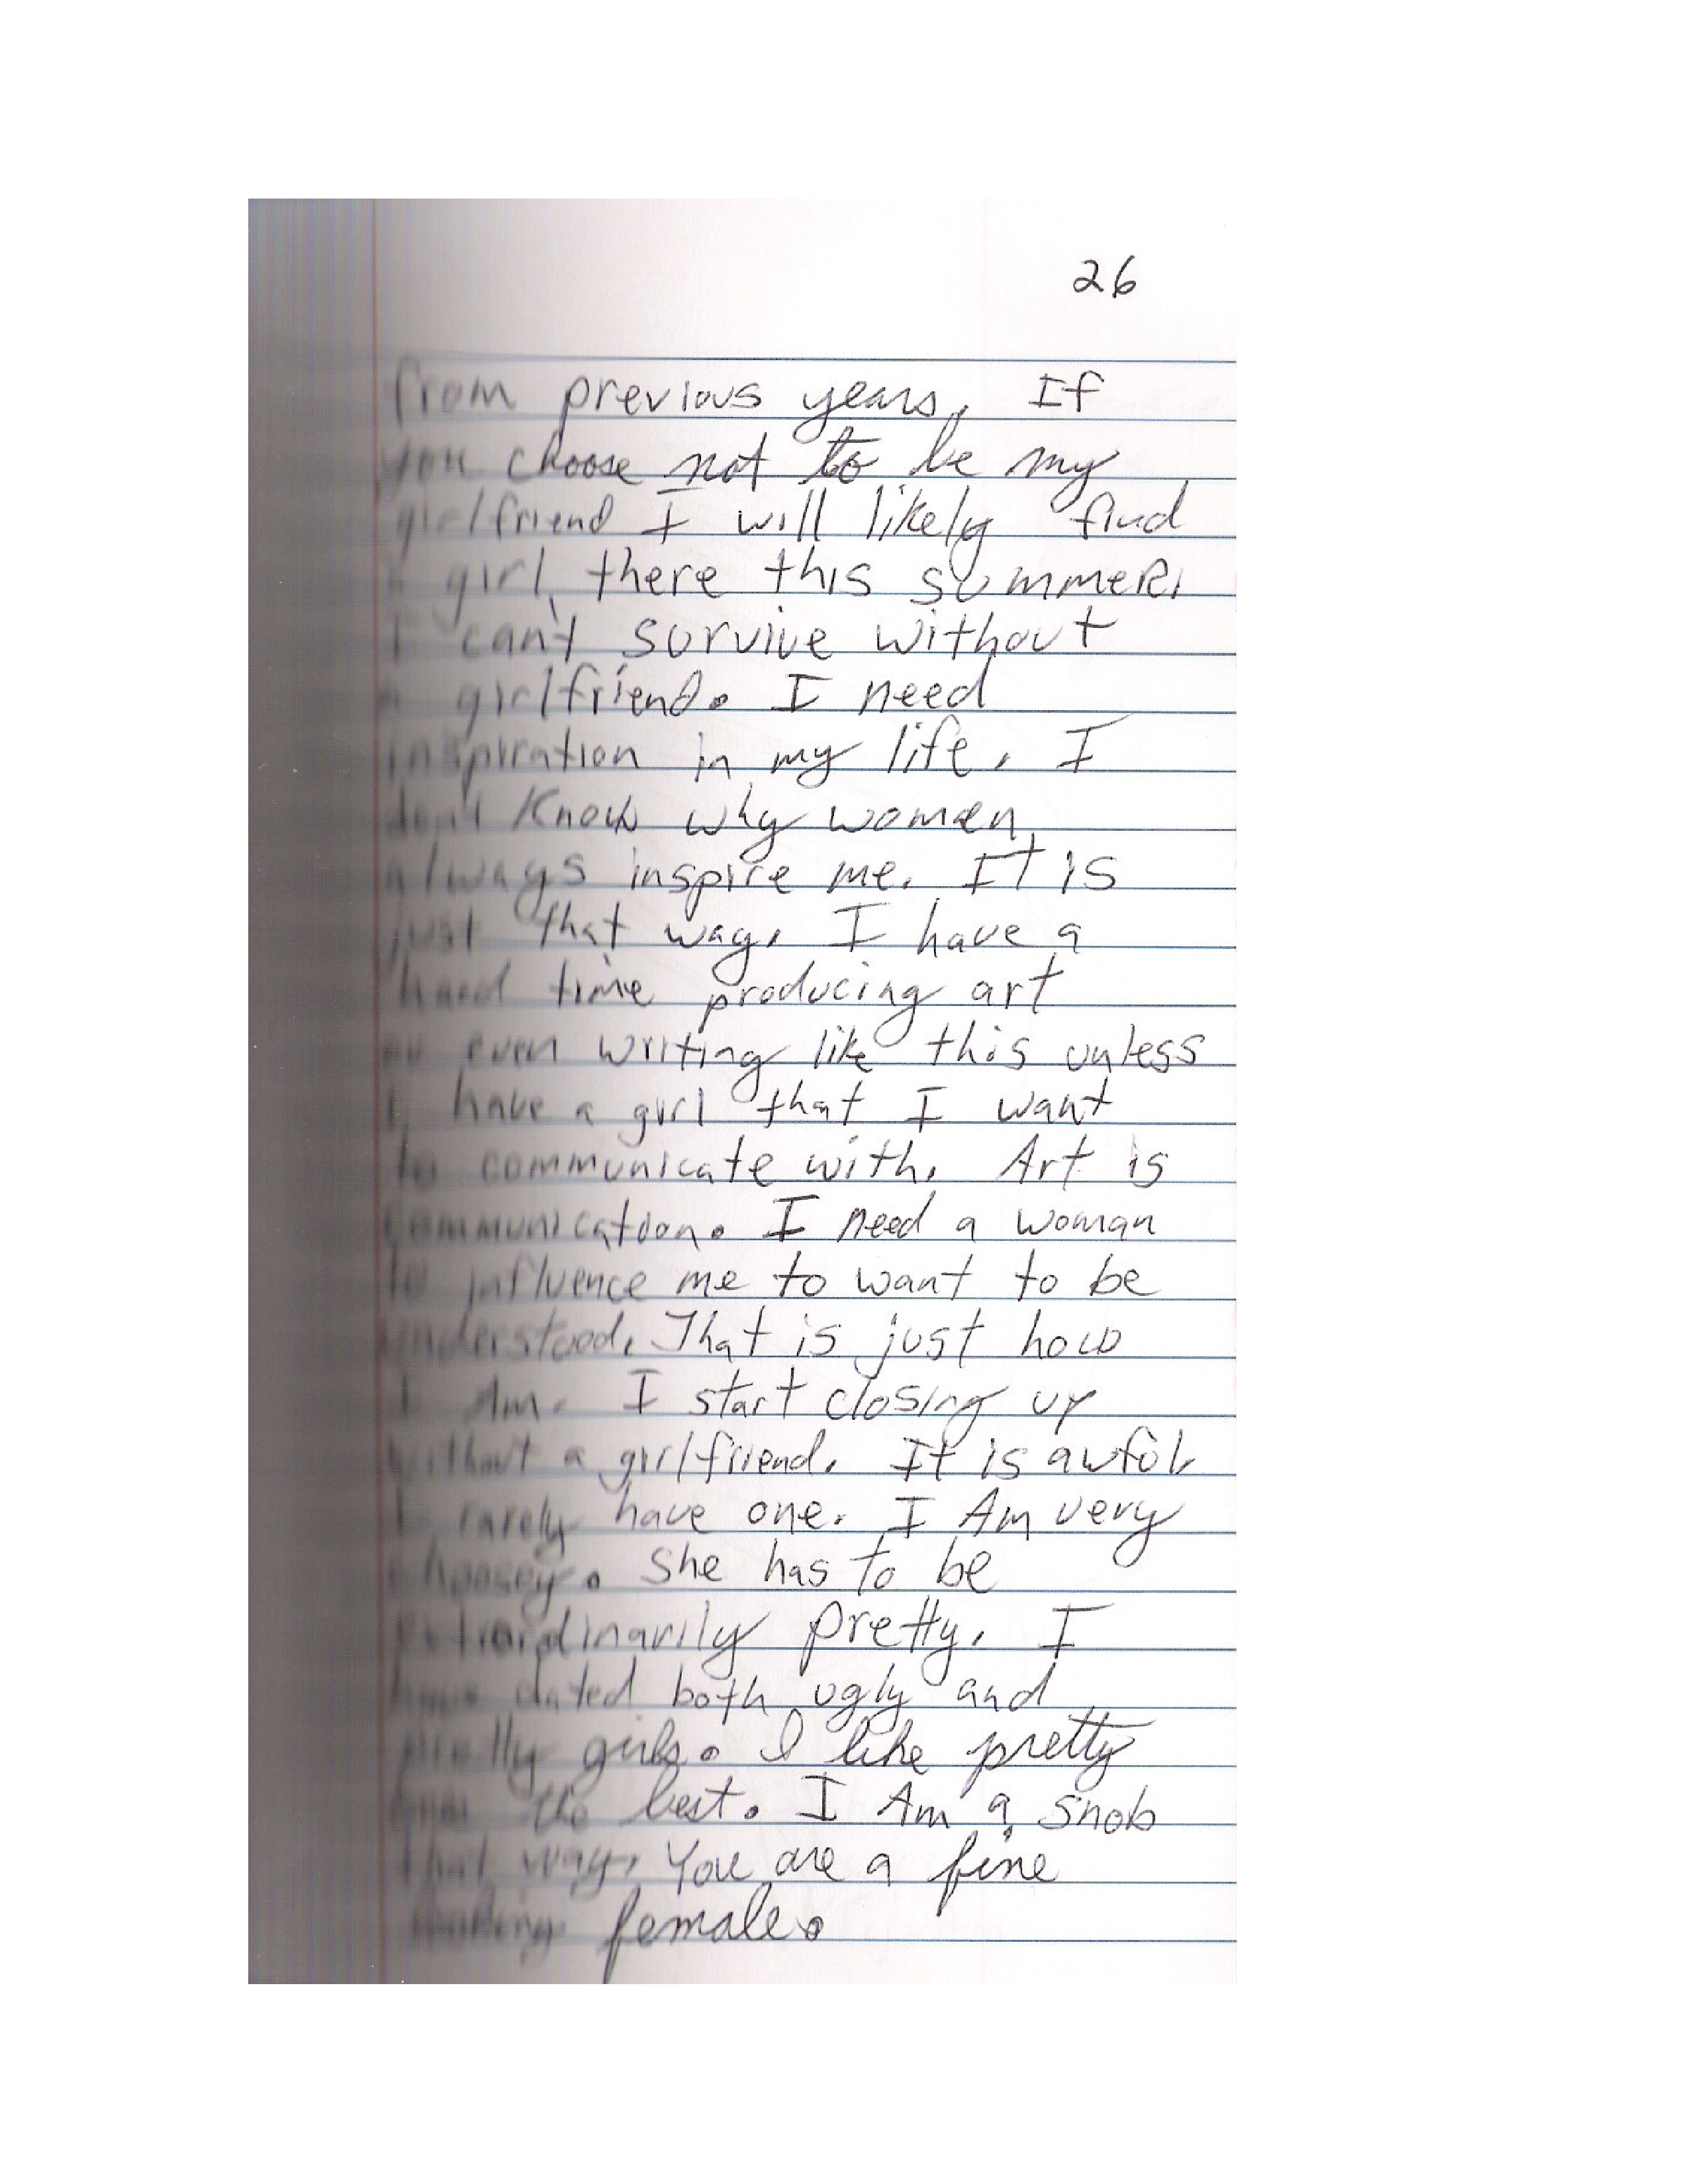 26
from previous years. If
you choose not to be my
girlfriend I will likely find
a girl there this summer.
I can't survive without
a girlfriend. I need
inspiration in my life. I
don't know why women
always inspire me. It is
just that way. I have a
hard time producing art
or even writing like this unless
I have a girl that I want
to communicate with. Art is
communication. I need a woman
to influence me to want to be
understood. That is just how
I Am. I start closing up
without a girlfriend. It is awful
I rarely have one. I Am very
choosey. She has to be
extraordinarily pretty. I
have dated both ugly and
pretty girls. I like pretty
the best. I Am a snob
that way. You are a fine
looking female.